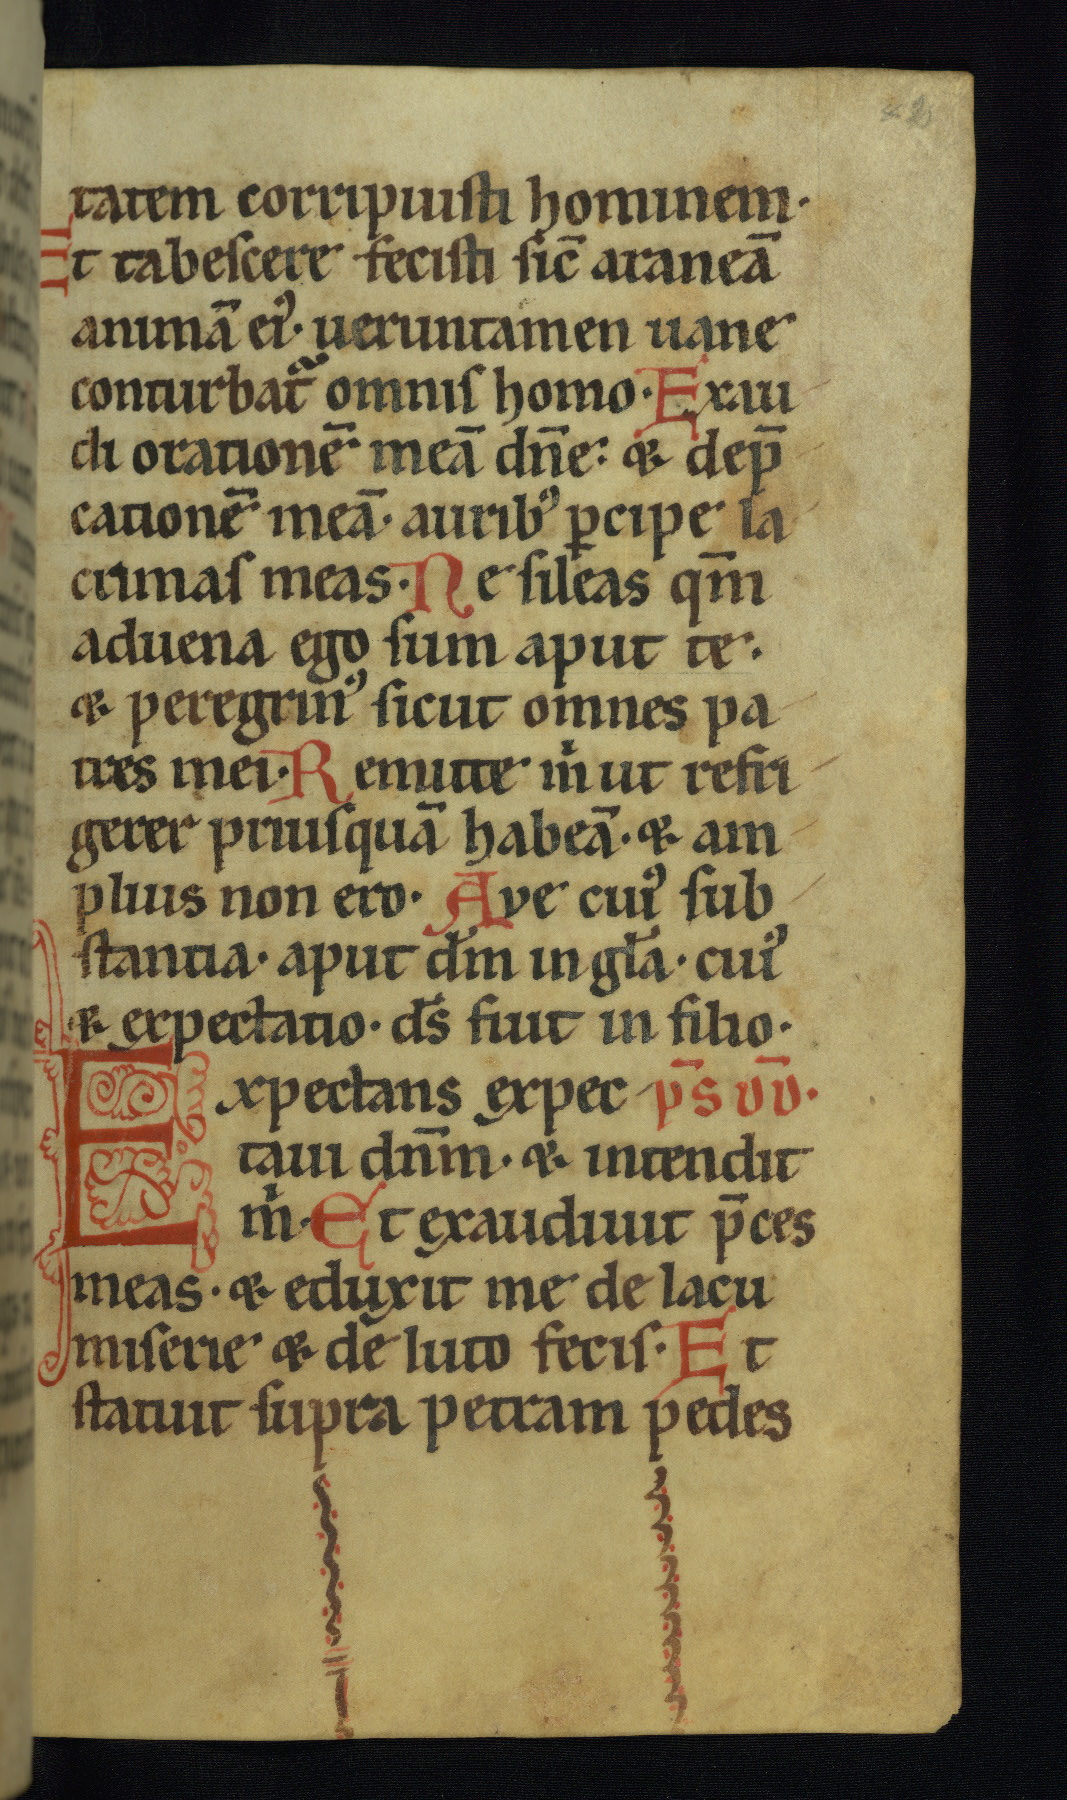 tatem corripuisti hominem·
Et tabescere fecisti sic̄ araneā
animā eiꝰ· ueruntamen uane
conturbat᷑ omnis homo· Exau
di orationē meā dn̄e: & dep̄
cationē meā· auribꝰ ꝑcipe la
crimas meas· Ne sileas qm̄
aduena ego sum aput te·
& peregrinꝰ sicut omnes pa
tres mei· Remitte m̍ ut refri
gerer priusquā habeā· & am
plius non ero· Aye cuiꝰ sub
stantia· aput dm̄ in gl̄a· cuiꝰ
& expectatio· ds̄ fiut in filio·
Expectans expec p̄s vv̄·
taui dn̄m· & intendit
m̍· Et exaudiuit p̄ces
meas· & eduxit me de lacu
miserie & de luto fecis· Et
statuit supra petram pedes